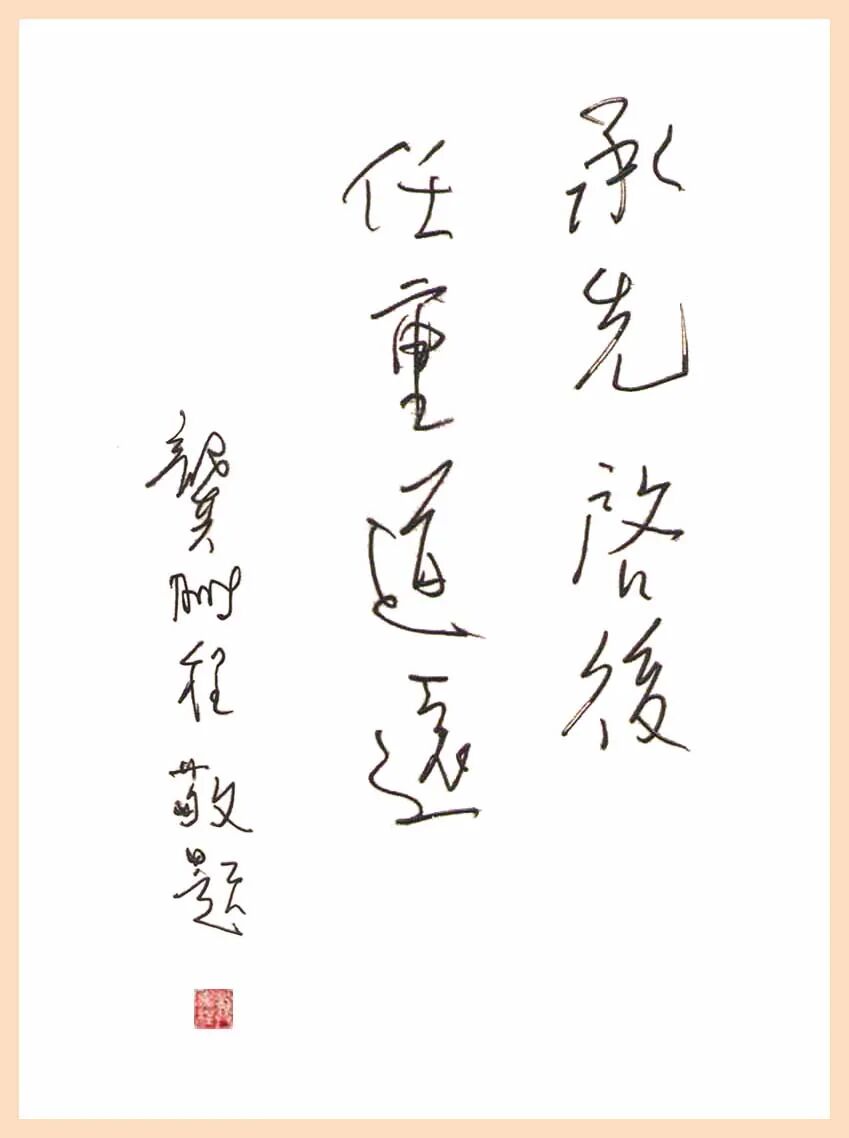 承先啓後
任重道遠
龔鵬程敬題